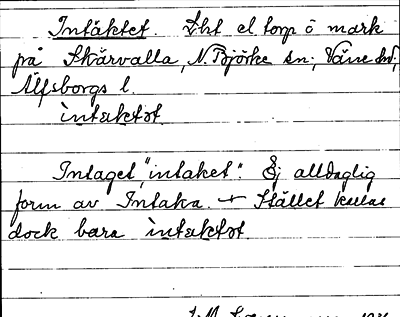 Intäktet. Lht el. torp å mark
på Skärvalla, N. Björke sn; Väne hd,
Älfsborgs l.
ìntaktət
Intaget, "intaket". Ej alldaglig
form av Intaka. + Stället kallas
dock bara ìntaktət.